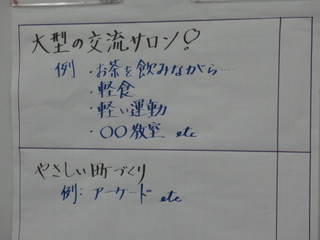 大型の交流サロン♡
例 ・お茶を飲みながら‥‥
・軽食
・軽い運動
・〇〇教室 etc
やさしい町づくり
例：アーケード etc